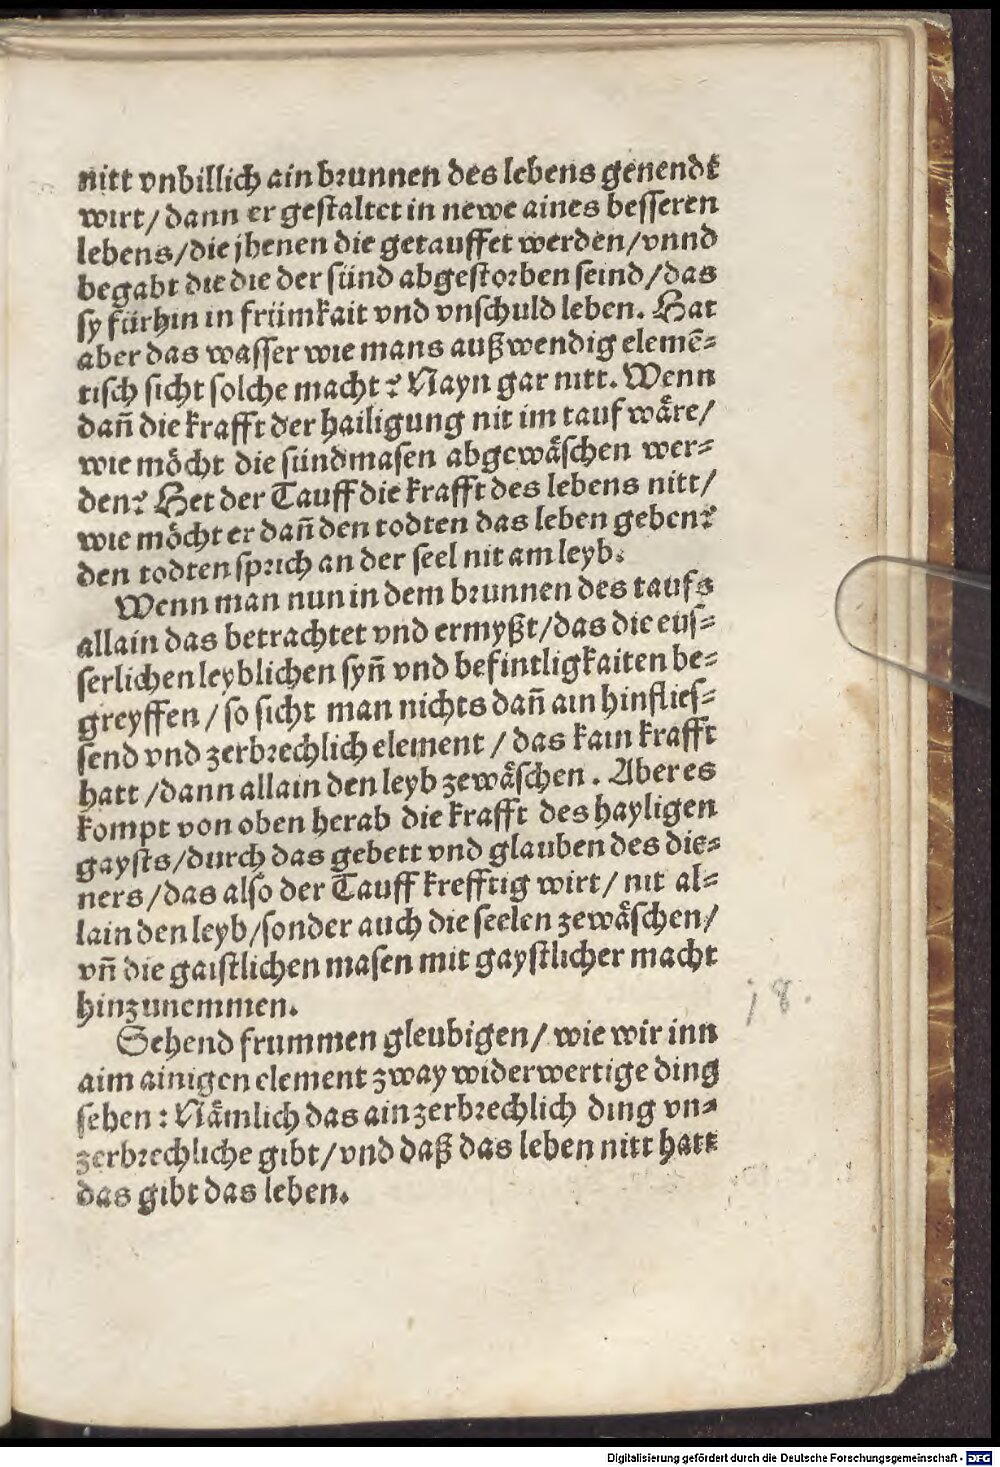 nitt vnbillich ain brunnen des lebens genendt
wirt/ dann er gestaltet in newe aines besseren
lebens/die jhenen die getauffet werden/vnnd
begabt die die der sünd abgestorben seind/das
sy fürhin in frümkait vnd vnschuld leben. Hat
aber das wasser wie mans außwendig elemē⸗
tisch sicht solche macht? Nayn gar nitt. Wenn
dañ die krafft der hailigung nit im tauf wäre/
wie möcht die sündmasen abgewäschen wer⸗
den? Het der Tauff die krafft des lebens nitt/
wie möcht er dañ den todten das leben geben?
den todten sprich an der seel nit am leyb.
Wenn man nun in dem brunnen des taufs
allain das betrachtet vnd ermyßt/das die eus⸗
serlichen leyblichen syñ vnd befintligkaiten be⸗
greyffen/ so sicht man nichts dañ ain hinflies⸗
send vnd zerbrechlich element/ das kain krafft
hatt/dann allain den leyb zewäschen. Aber es
kompt von oben herab die krafft des hayligen
gaysts/durch das gebett vnd glauben des die⸗
ners/das also der Tauff krefftig wirt/ nit al⸗
lain den leyb/sonder auch die seelen zewäschen/
vñ die gaistlichen masen mit gaystlicher macht
hinzunemmen.
Sehend frummen gleubigen/ wie wir inn
aim ainigen element zway widerwertige ding
sehen: Nämlich das ain zerbrechlich ding vn⸗
zerbrechliche gibt/vnd daß das leben nitt hatt
das gibt das leben.
18.
Digitalisierung gefördert durch die Deutsche Forschungsgemeinschaft - DFG